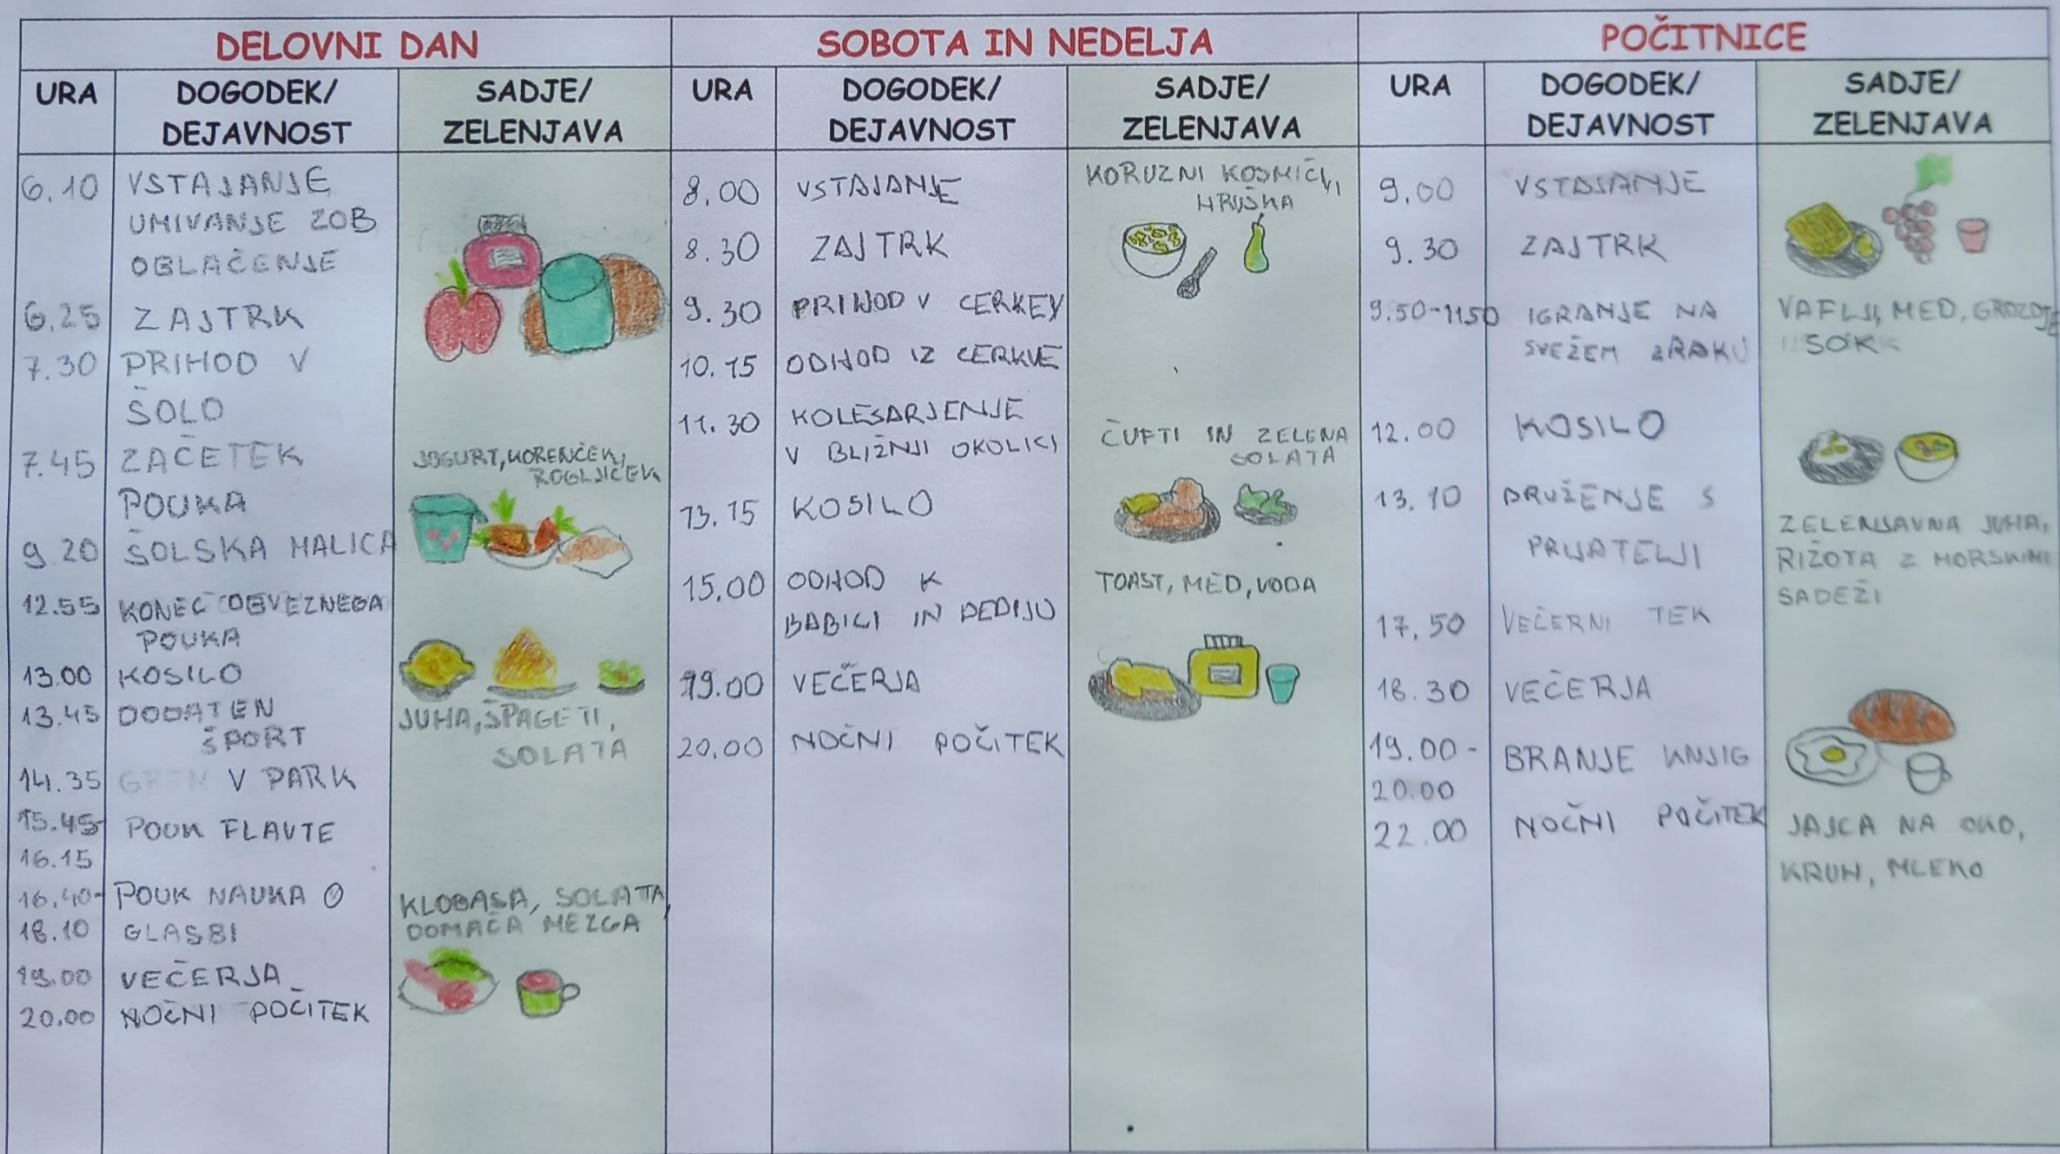 DELOVNI DAN
URA
DOGODEK/
DEJAVNOST
SADJE/
ZELENJAVA
6.10 VSTAJANJE,
UMIVANJE ZOB
OBLAČENJE
6.25 ZAJTRK
7.30 PRIHOD V
ŠOLO
7.45 ZAČETEK
POUKA
JOGURT, KORENČEK,
ROGLJIČEK
9.20 ŠOLSKA MALICA
12.55 KONEC OBVEZNEGA
POUKA
13.00 KOSILO
13.45 DODATEN
ŠPORT
JUHA, ŠPAGETI,
SOLATA
14.35 GREM V PARK
15.45- POUK FLAVTE
16.15
16.40- POUK NAUKA O
18.10 GLASBI
KLOBASA, SOLATA,
DOMAČA MEZGA
19.00 VEČERJA
20.00 NOČNI POČITEK
SOBOTA IN NEDELJA
URA
DOGODEK/
DEJAVNOST
SADJE/
ZELENJAVA
8.00 VSTAJANJE
KORUZNI KOSMIČI,
HRUŠKA
8.30 ZAJTRK
9.30 PRIHOD V CERKEV
10.15 ODHOD IZ CERKVE
11.30 KOLESARJENJE
V BLIŽNJI OKOLICI
ČUFTI IN ZELENA
SOLATA
13.15 KOSILO
15.00 ODHOD K
BABICI IN DEDIJU
TOAST, MED, VODA
19.00 VEČERJA
20.00 NOČNI POČITEK
POČITNICE
URA
DOGODEK/
DEJAVNOST
SADJE/
ZELENJAVA
9.00 VSTAJANJE
9.30 ZAJTRK
9.50-11.50 IGRANJE NA
SVEŽEM ZRAKU
VAFLJI, MED, GROZDJE
SOK
12.00 KOSILO
13.10 DRUŽENJE S
PRIJATELJI
ZELENJAVNA JUHA,
RIŽOTA Z MORSKIMI
SADEŽI
17.50 VEČERNI TEK
18.30 VEČERJA
19.00- BRANJE KNJIG
20.00
22.00 NOČNI POČITEK
JAJCA NA OKO,
KRUH, MLEKO